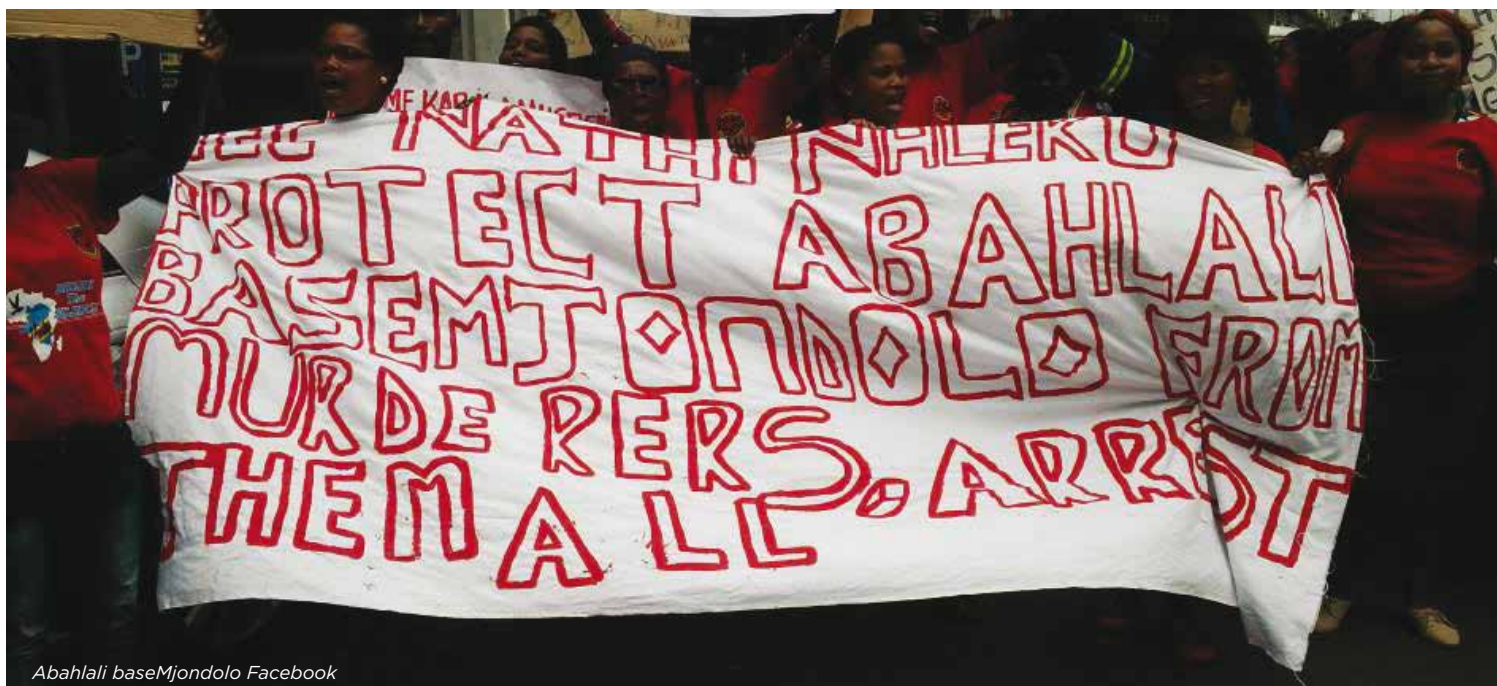 P
MEC NATHI NHLEKO
PROTECT ABAHLALI
BASEMJONDOLO FROM
MURDERERS. ARREST
THEM ALL
Abahlali baseMjondolo Facebook